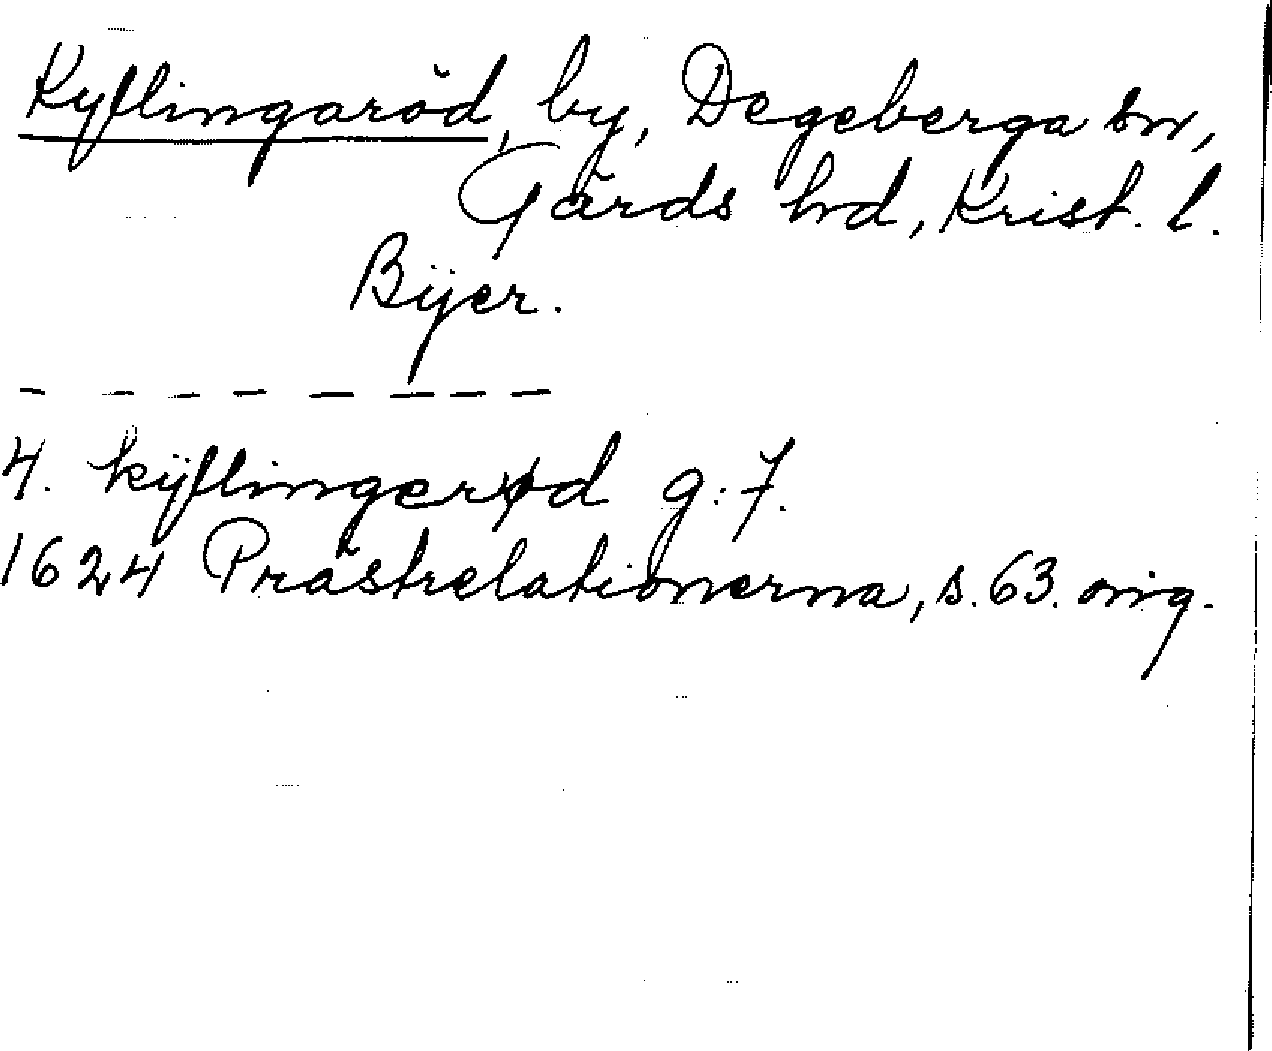 Kyflingaröd, by, Degeberga sn,
Gärds hd, Krist. l.
Bÿer.
— — — — — — — —
4. kÿflingerød g: 7.
1624 Prästrelationerna, s. 63. orig.